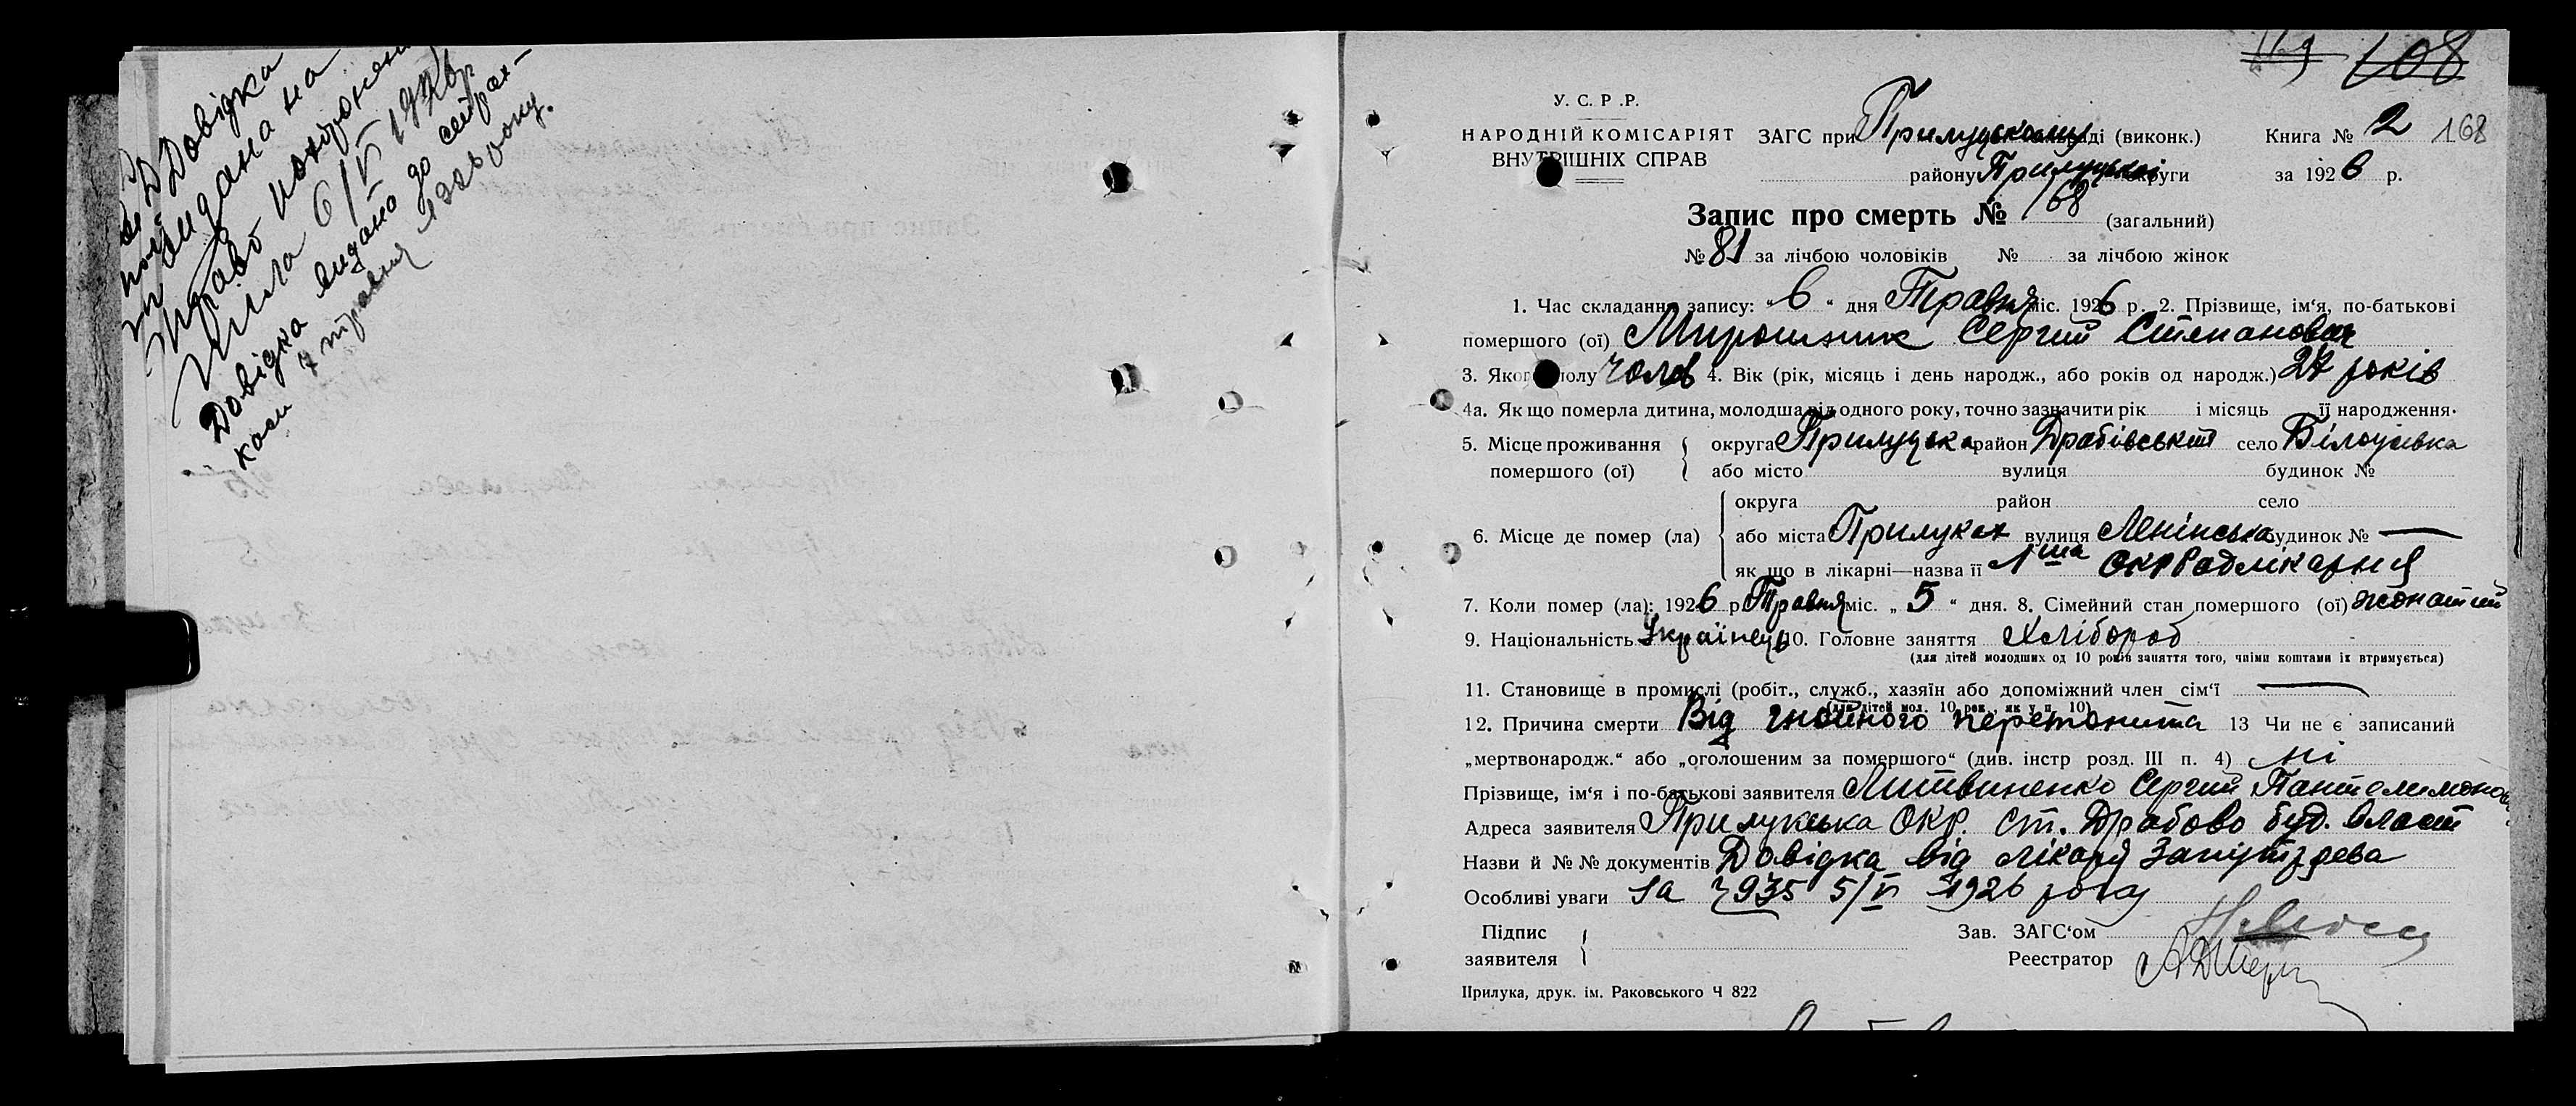 Довідка
видана на
право похоронення
тіла 6/V 1926 р
Довідка видана до страх-
каси 7 травня 1926 року.
119 108
У. С. Р. Р.
НАРОДНІЙ КОМІСАРІЯТ
ВНУТРІШНІХ СПРАВ
ЗАГС при Прилуцькому раді (виконк.) Книга № 2 168
району Прилуцької округи за 1926 р.
Запис про смерть № 168 (загальний)
№ 81 за лічбою чоловіків № за лічбою жінок
1. Час складання запису: „6“ дня Травня міс. 1926 р. 2. Прізвище, ім‘я, по-батькові
помершого (ої) Мирошник Сергий Степанович
3. Якого полу чолов 4. Вік (рік, місяць і день народж., або років од народж.) 27 років
4а. Як що померла дитина, молодша від одного року, точно зазначити рік і місяць її народження.
5. Місце проживання помершого (ої) { округа Прилуцька район Драбівський село Білоусівка
або місто вулиця будинок №
6. Місце де помер (ла) { округа район село
або міста Прилуках вулиця Ленінська будинок № —
як що в лікарні—назва її 1ша Окррадлікарня
7. Коли помер (ла): 1926 р. Травня міс. „5“ дня. 8. Сімейний стан помершого (ої) жонатий
9. Національність Українець 10. Головне заняття Хлібороб
(для дітей молодших од 10 років заняття того, чиїми коштами їх втримується)
11. Становище в промислі (робіт., служб., хазяїн або допоміжний член сім‘ї —
(для дітей мол. 10 рок., як у п. 10)
12. Причина смерти Від гнойного перетонита 13 Чи не є записаний
„мертвонародж.“ або „оголошеним за помершого“ (див. інстр розд. III п. 4) ні
Прізвище, ім‘я і по-батькові заявителя Литвиненко Сергий Пантелимонов
Адреса заявителя Прилукька Окр. ст. Драбово буд. власт
Назви й №№ документів Довідка від лікаря
Особливі уваги за 7935 5/V 1926 року
Підпис заявителя {
Зав. ЗАГС‘ом
Реестратор
Прилука, друк. ім. Раковського Ч 822